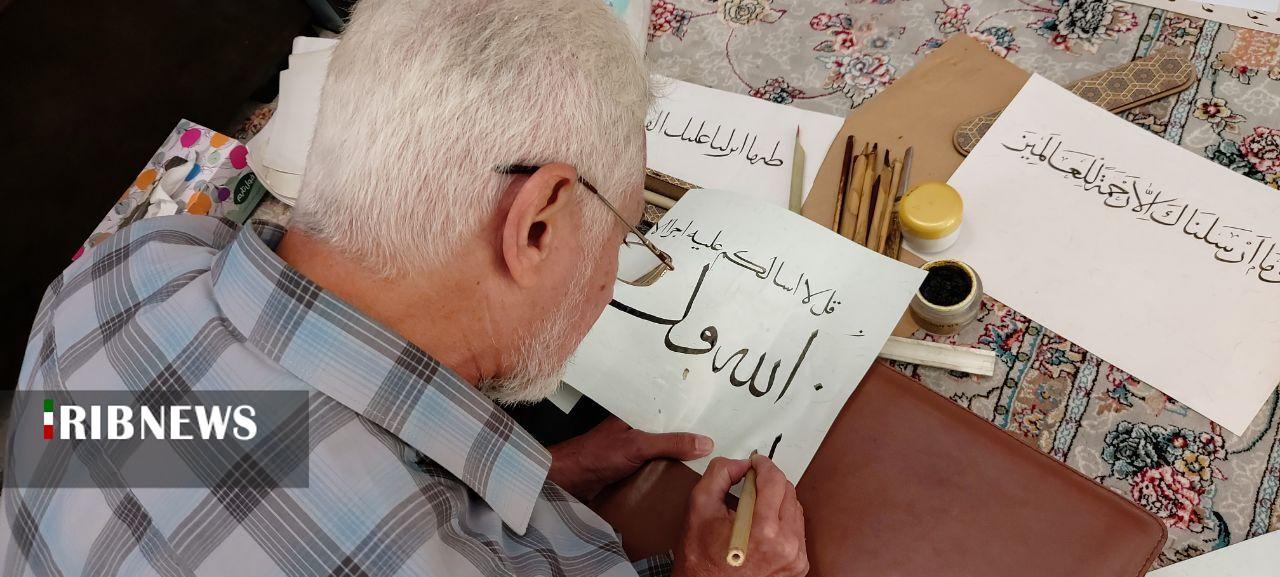 طه ما انزلنا علیک الق
و ما اَرْسَلْنَاكَ اِلَّا رَحْمَةً لِّلْعَالَمِينَ
قل لا اسالکم علیه اجرا الا
الله
IRIBNEWS